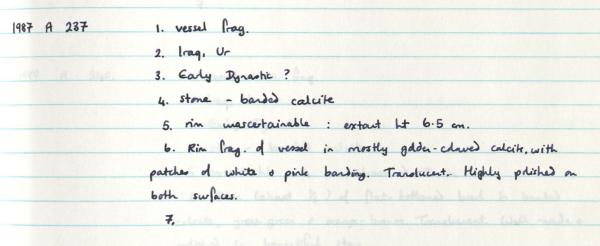 1987 A 237 1. vessel frag.
2. Iraq, Ur
3. Early Dynastic ?
4. stone - banded calcite
5. rim unascertainable : extant ht 6.5 cm.
6. Rim frag. of vessel in mostly golden-coloured calcite, with
patches of white & pink banding. Translucent. Highly polished on
both surfaces.
7.